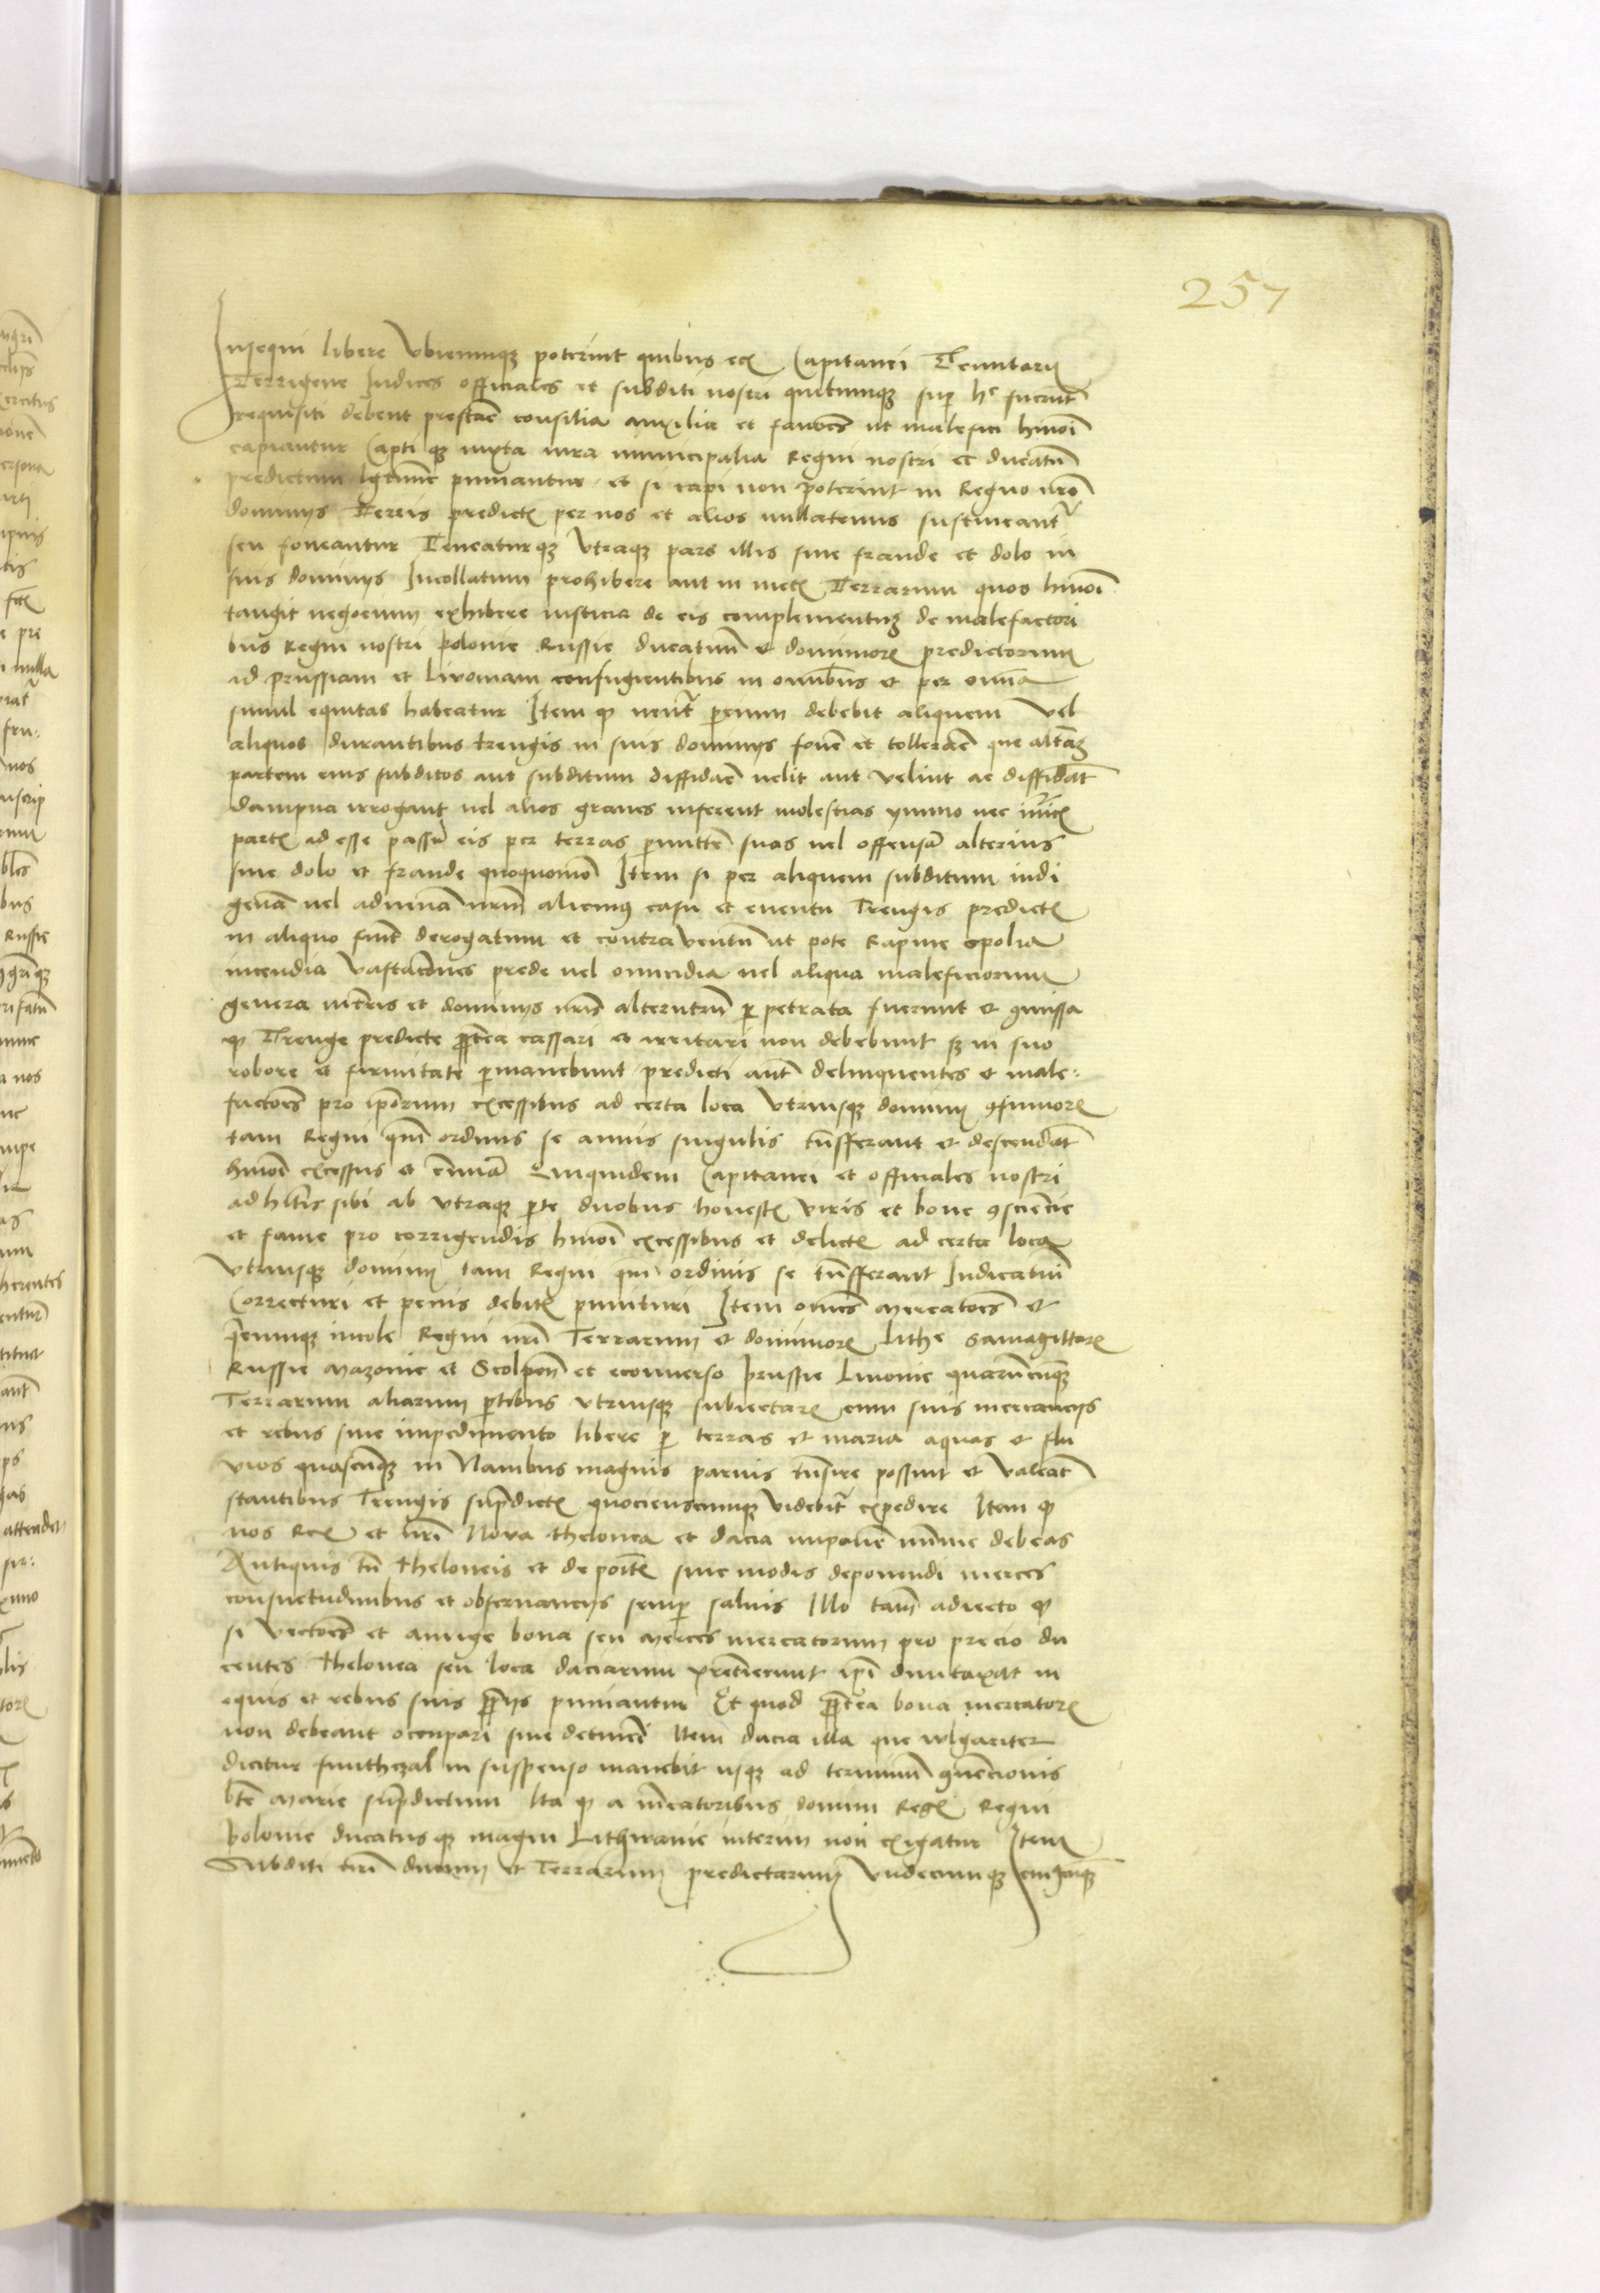 257
Insequi libere Vbicumqꝫ poterint quibus eciā Capitanei Tenutarij
Terrigene Iudices officiales et subditi nostri quicumqꝫ sup hᵒ fuerint
requisiti debent prestare consilia auxilia et favores ut malefici hmōi
capiantur Captiqꝫ iuxta iura municipalia Regni nostri et ducatuū
predictum puniantur et si capi non poterint in Regno nr̄o
dominijs Terris predictꝭ per nos et alios nullatenus sustineantʳ
seu foueantur Teneaturqꝫ Vtraqꝫ pars illis sine fraude et dolo in
suis dominijs Incollatum prohibere aut in metꝭ Terrarum quos hmōi
tangit negocium exhibere iusticie de eis complementuꝫ de malefactori
bus Regni nostri Polonie Russie ducatuū et dominiorꝝ predictorum
ad prussiam et Livoniam confugientibus in omnibus et per omnia
simul equitas habeatur Item qꝫ neutʳ parcium debebit aliquem Vel
aliquos durantibus treugis in suis dominijs fouē et tollerare que alterā
partem eius subditos aut subditum diffidare uelit aut Velint ac diffidāt
dampna irrogant uel alios graues inferent molestias ymmo nec
partꝭ ad esse passum eis per terras permittē suas uel offensā alterius
sine dolo et fraude quoquomō Item si per aliquem subditum indi
genā uel aduenā nr̄m alicuiꝰ casu et euentu Treugis predictꝭ
in aliquo fuit derogatum et contra ventū ut pote Rapine spolia
incendia Vastacōnes prede uel omicidia uel aliqua maleficiorum
genera in terris et dominijs nr̄is alterutrū ꝑpetrata fuerint et ꝯmissa
qꝫ Treuge predicte propterea cassari et irritari non debebunt sꝫ in suo
robore et firmitate ꝑmanebunt predicti aūt delinquentes et male-
factores pro ipsorum excessibus ad certa loca Vtriusqꝫ dominij ꝯfiniorꝝ
tam Regni qm̄ ordinis se annis singulis trāsferant et descendāt
hmōi excessus et Quiquidem Capitanei et officiales nostri
adhītis sibi ab Vtraqꝫ ꝑte duobus honestꝭ viris et bone ꝯsciencie
et fame pro corrigendis hmōi excessibus et delictꝭ ad certa loca
Vtriusqꝫ dominij tam Regni qm̄ ordinis se trāsferant Iudicatum
Correcturi et penis debitꝭ punituri Item omnes mercatores et
quicumqꝫ incole Regni nr̄i Terrarum et dominiorꝝ Lithᵉ Samagittarꝝ
Russie Mazouie et Stolpen et econuerso prussie Liuonie quarūcūqꝫ
Terrarum aliarum ꝑtibus Vtriusqꝫ subiectarꝝ cum suis mercancijs
et rebus sine impedimento libere ꝑ terras et maria aquas et flu
vios quascūqꝫ in Nauibus magnis paruis trāsire possint et Valeāt
stantibus Treugis supradictꝭ quocienscumqꝫ videbitʳ expedire Item qꝫ
nos Rex et nr̄i Nova thelonea et dacia imponē mīme debeās
Antiquis tn̄ theloneis et depositꝭ siue modis deponendi merces
consuetudinibus et obseruancijs semꝑ saluis Illo tamē adiecto qꝫ
si vectores et aurige bona seu merces mercatorum pro precio du
centes thelonea seu loca daciarum preterierint ipī dumtaxat in
equis et rebus suis proprijs puniantur Et quod propterea bona mercatorꝝ
non debeant occupari siue detineri Item dacia illa que wlgariter
dicitur funthczal in suspenso manebit usqꝫ ad terminū ꝯuencionis
bt̄e Marie supradictum Ita qꝫ a mercatoribus domini Regꝭ Regni
Polonie ducatusqꝫ magni Lithwanie interim non exigatur Item
Subditi nr̄i ducatuū et Terrarum predictarum Vndecumqꝫ